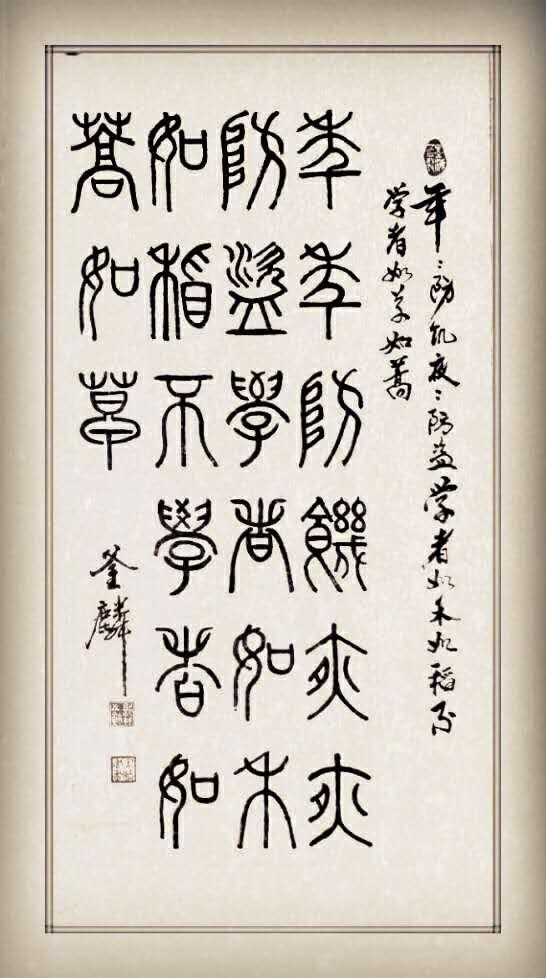 年〻防饥夜〻防盗学者如禾如稻不
学者如草如蒿
年年防饑夜夜
防盜學者如禾
如稻不學者如
蒿如草
麟